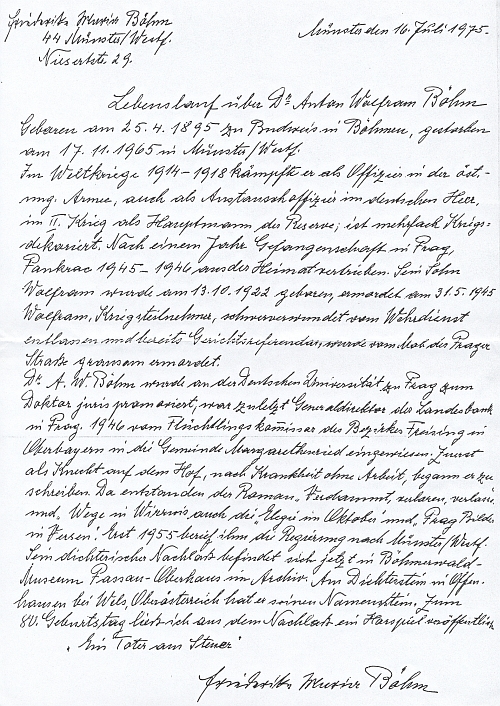 Friederike Maria Böhm
44 Münster/Westf.
29.
Münster, den 16. Juli 1975.
Lebenslauf über Dr. Anton Wolfram Böhm
Geboren am 25.4.1895 zu Budweis in Böhmen, gestorben
am 17.11.1965 in Münster/Westf.
Im Weltkriege 1914-1918 kämpfte er als Offizier in der öst.-
ung. Armee, auch als Austauschoffizier im deutschen Heer,
im II. Krieg als Hauptmann der Reserve; ist mehrfach Kriegs-
dekoriert. Nach einem Jahr Gefangenschaft in Prag,
Pankrac 1945-1946 aus der Heimat vertrieben. Sein Sohn
Wolfram wurde am 13.10.1922 geboren, ermordet am 31.5.1945
Wolfram, Kriegsteilnehmer, schwerverwundet vom Wehrdienst
entlassen und bereits Gerichtsreferendar, wurde vom Mob der Prager
Straße grausam ermordet.
Dr. A. W. Böhm wurde an der Deutschen Universität zu Prag zum
Doktor juris promoviert, war zuletzt Generaldirektor der Landesbank
in Prag. 1946 vom Flüchtlingskommissar des Bezirkes Freising in
Oberbayern in die Gemeinde Margarethenried eingewiesen. Zuerst
als Knecht auf dem Hof, nach Krankheit ohne Arbeit, begann er zu
schreiben. Da entstanden der Roman, "Verdammt,
und "Wege in Wirrnis, auch die "Elegie im Oktober und "Prag Bilder
in Versen". Erst 1955 berief ihn die Regierung nach Münster/Westf.
Sein dichterischer Nachlaß befindet sich jetzt in Böhmerwald-
Museum Passau-Oberhaus im Archiv. Am Dichterstein in Offen-
hausen bei Wels, Oberösterreich hat er seinen Namenstein. Zum
80. Geburtstag ließ ich aus dem Nachlaß ein Hörspiel veröffentlichen
"Ein Toter am Steuer"
Friederike Maria Böhm